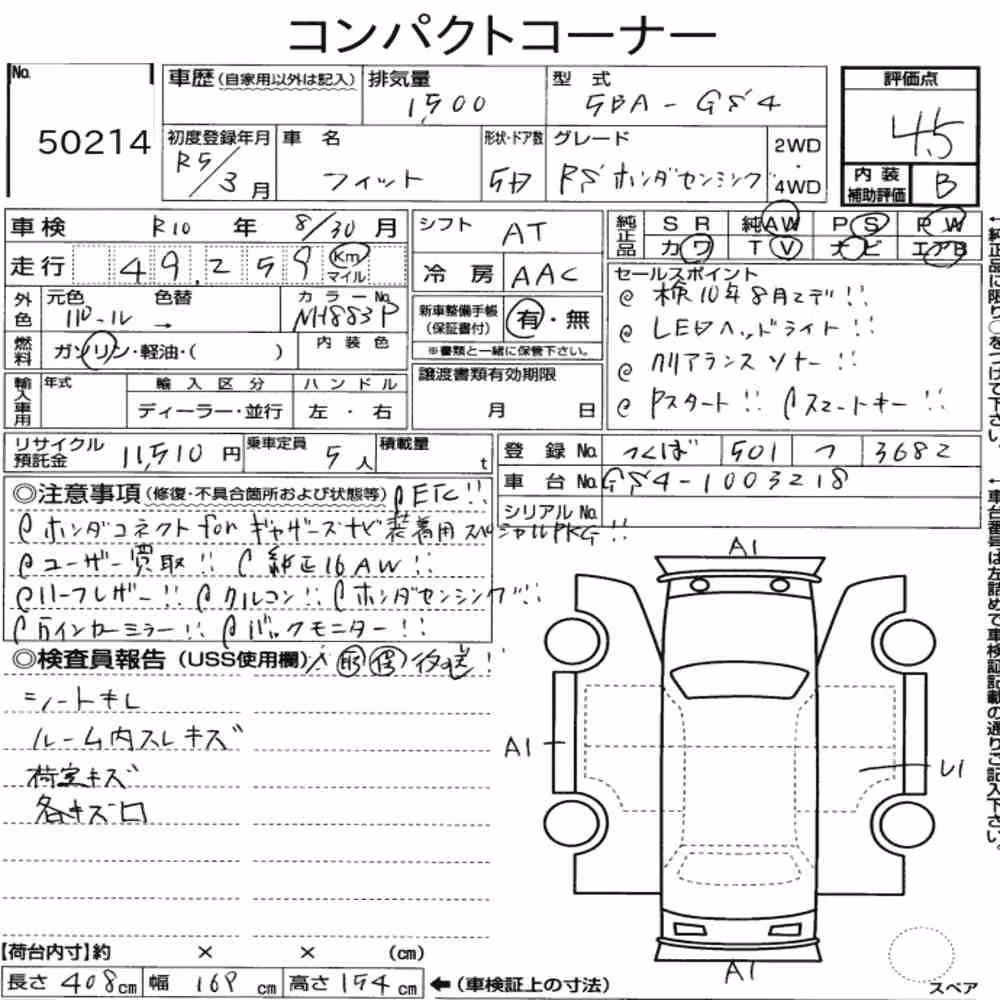 コンパクトコーナー
No. 50214
車歴 (自家用以外は記入) 排気量 1,500 型式 5BA-GS4
初度登録年月 R5/3月 車名 フィット 形状・ドア数 5D グレード RS ホンダセンシング 2WD・4WD
評価点 4.5
内装補助評価 B
車検 R10年 8/30月
走行 49,259 Km マイル
外色 元色 パール 色替 → カラーNo. NH883P
燃料 ガソリン・軽油・( ) 内装色
輸入車用 年式 輸入区分 ディーラー・並行 ハンドル 左・右
シフト AT
冷房 AAC
新車整備手帳(保証書付) 有・無
※書類と一緒に保管下さい。
譲渡書類有効期限 月 日
純正品 SR 純AW PS PW
カワ TV ナビ エアB
セールスポイント
検10年8月マデ!!
LEDヘッドライト!!
クリアランスソナー!!
Pスタート!! スマートキー!!
リサイクル預託金 11,510円 乗車定員 5人 積載量 t
登録No. つくば 501 つ 3682
車台No. GS4-1003218
シリアルNo.
◎注意事項(修復・不具合箇所および状態等) ETC!!
ホンダコネクト for ギャザーズナビ装着用スペシャルPKG!!
ユーザー買取!! 純正16AW!!
ハーフレザー!! クルコン!! ホンダセンシング!!
ウインカーミラー!! バックモニター!!
◎検査員報告(USS使用欄) 取 保 後送!
シートキレ
ルーム内スレキズ
荷室キズ
各キズ凹
A1
A1
U1
A1
【荷台内寸】約 × × (cm)
長さ 408cm 幅 169cm 高さ 154cm ←(車検証上の寸法)
スペア
←純正品に限り○をつけて下さい。
←車台番号は左詰めで車検証記載の通りご記入下さい。